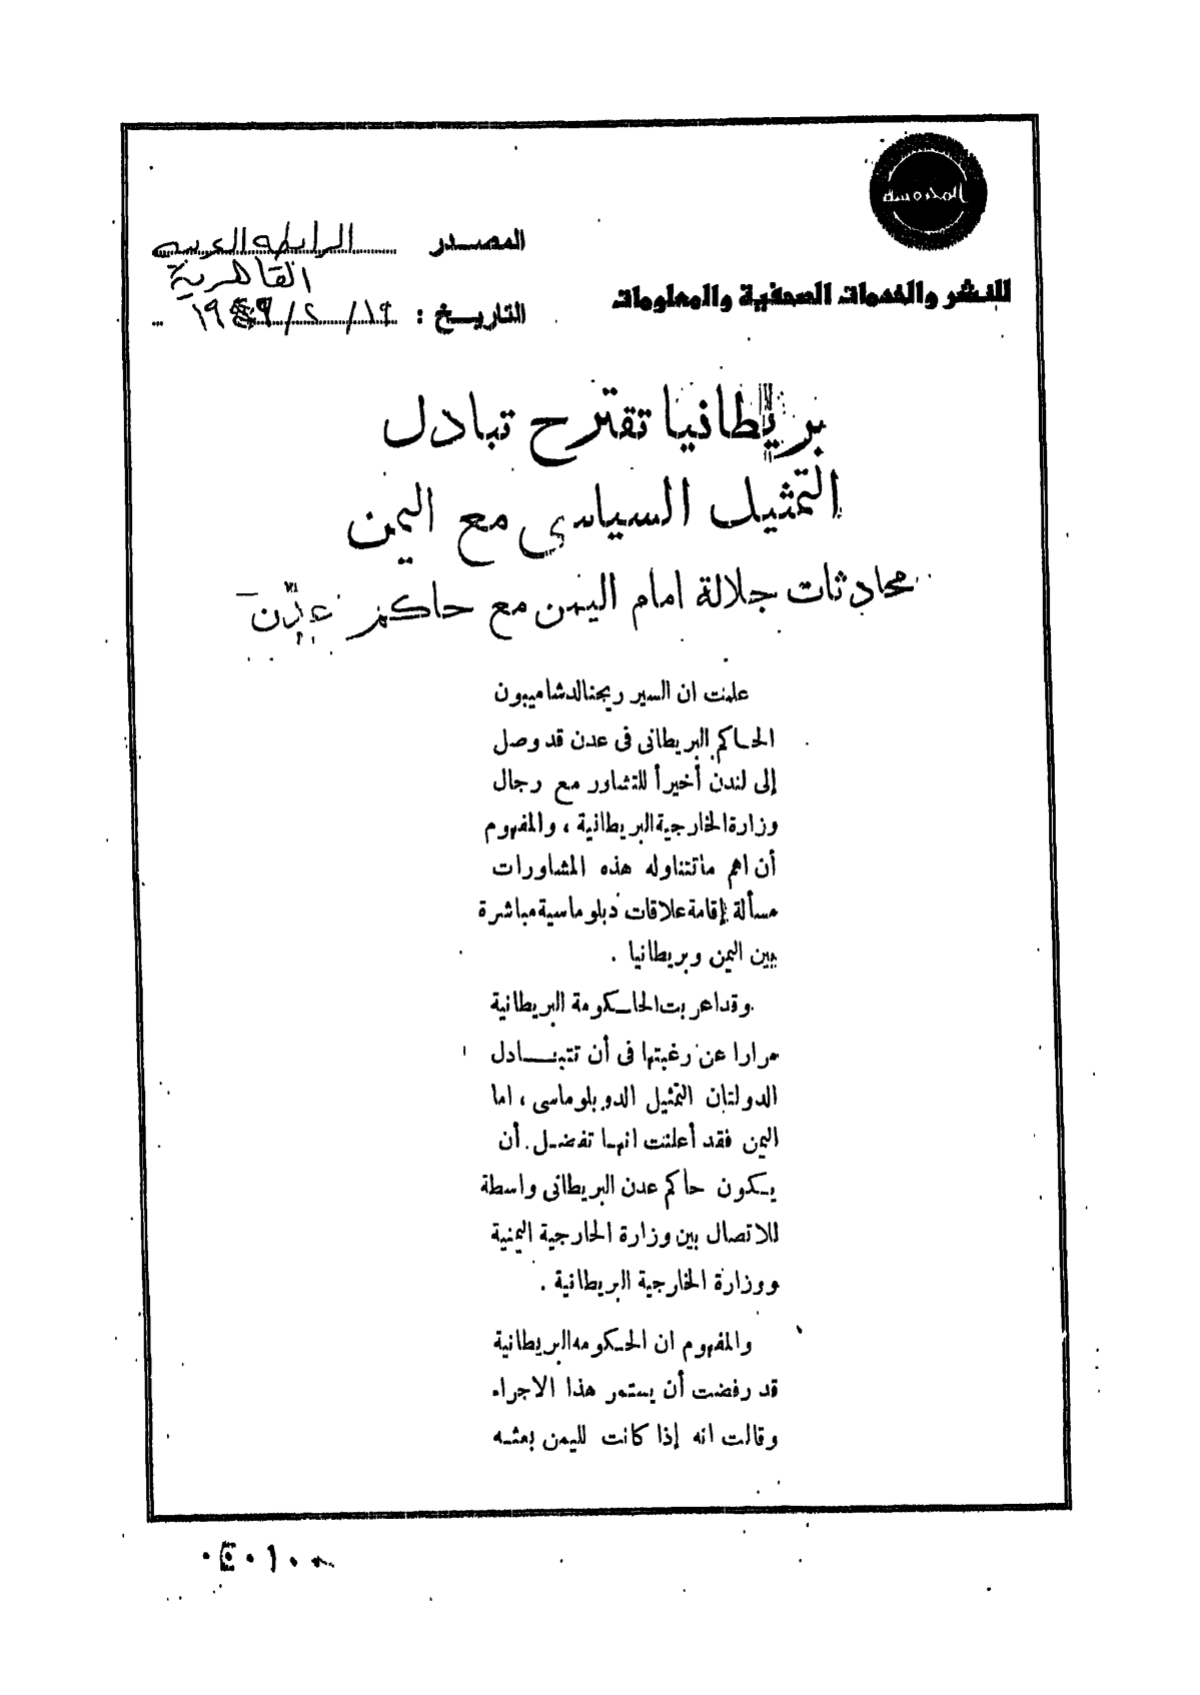 المحروسة
للنشر والخدمات الصحفية والمعلومات
المصدر الرابطة العربية
القاهرية
التاريخ : ١٩/٢/
بريطانيا تقترح تبادل
التمثيل السياسى مع اليمن
محادثات جلالة امام اليمن مع حاكم عدن
علمت ان السير ريجنالد شاميبون
الحاكم البريطانى فى عدن قد وصل
إلى لندن أخيراً للتشاور مع رجال
وزارة الخارجية البريطانية ، والمفهوم
أن اهم ماتتناوله هذه المشاورات
مسألة إقامة علاقات دبلوماسية مباشرة
بين اليمن وبريطانيا .
وقد اعربت الحكومة البريطانية
مرارا عن رغبتها فى أن تتبادل
الدولتان التمثيل الدوبلوماسى ، اما
اليمن فقد أعلنت انها تفضل أن
يكون حاكم عدن البريطانى واسطة
للاتصال بين وزارة الخارجية اليمنية
ووزارة الخارجية البريطانية .
والمفهوم ان الحكومه البريطانية
قد رفضت أن يستمر هذا الاجراء
وقالت انه إذا كانت لليمن بعثه